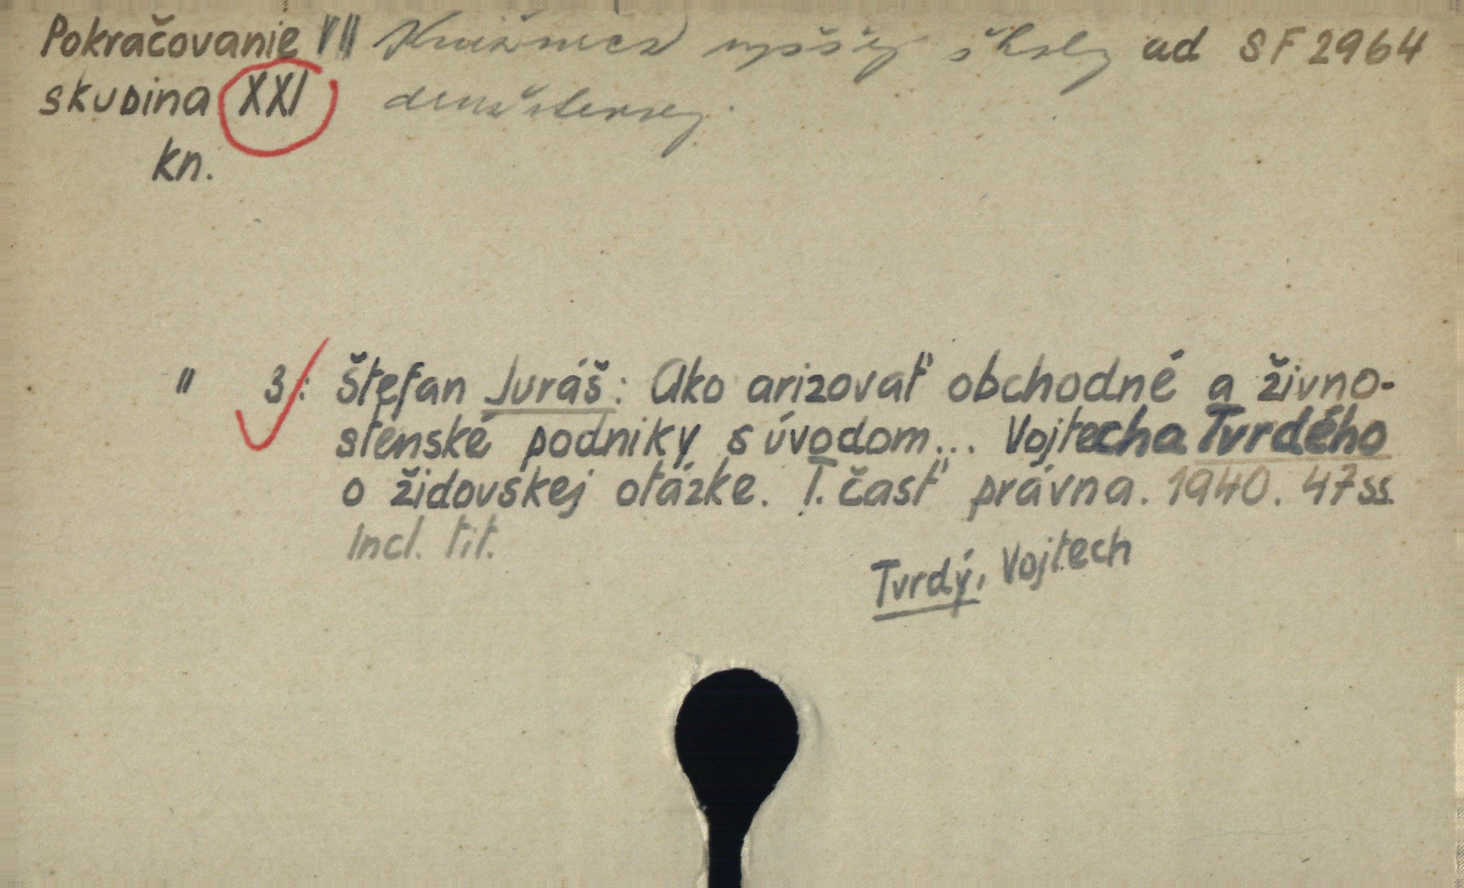 Pokračovanie VII Knižnica vyššej školy ad SF 2964
skupina XXI družstevnej.
kn.
" 3.: Štefan Juráš: Ako arizovať obchodné a živno-
stenské podniky s úvodom... Vojtecha Tvrdého
o židovskej otázke. I. časť právna. 1940. 47 ss.
Incl. tit.
Tvrdý, Vojtech